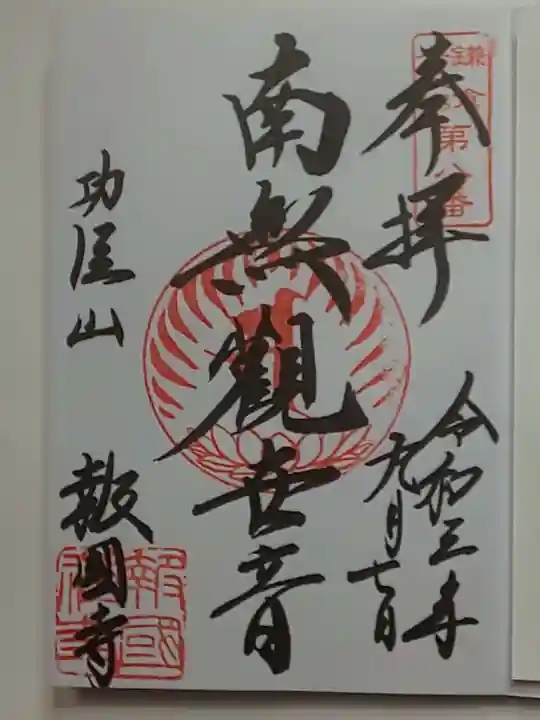 奉拝
鎌倉第八番
令和三年
九月七日
南無觀世音
功臣山
報國寺
報國寺